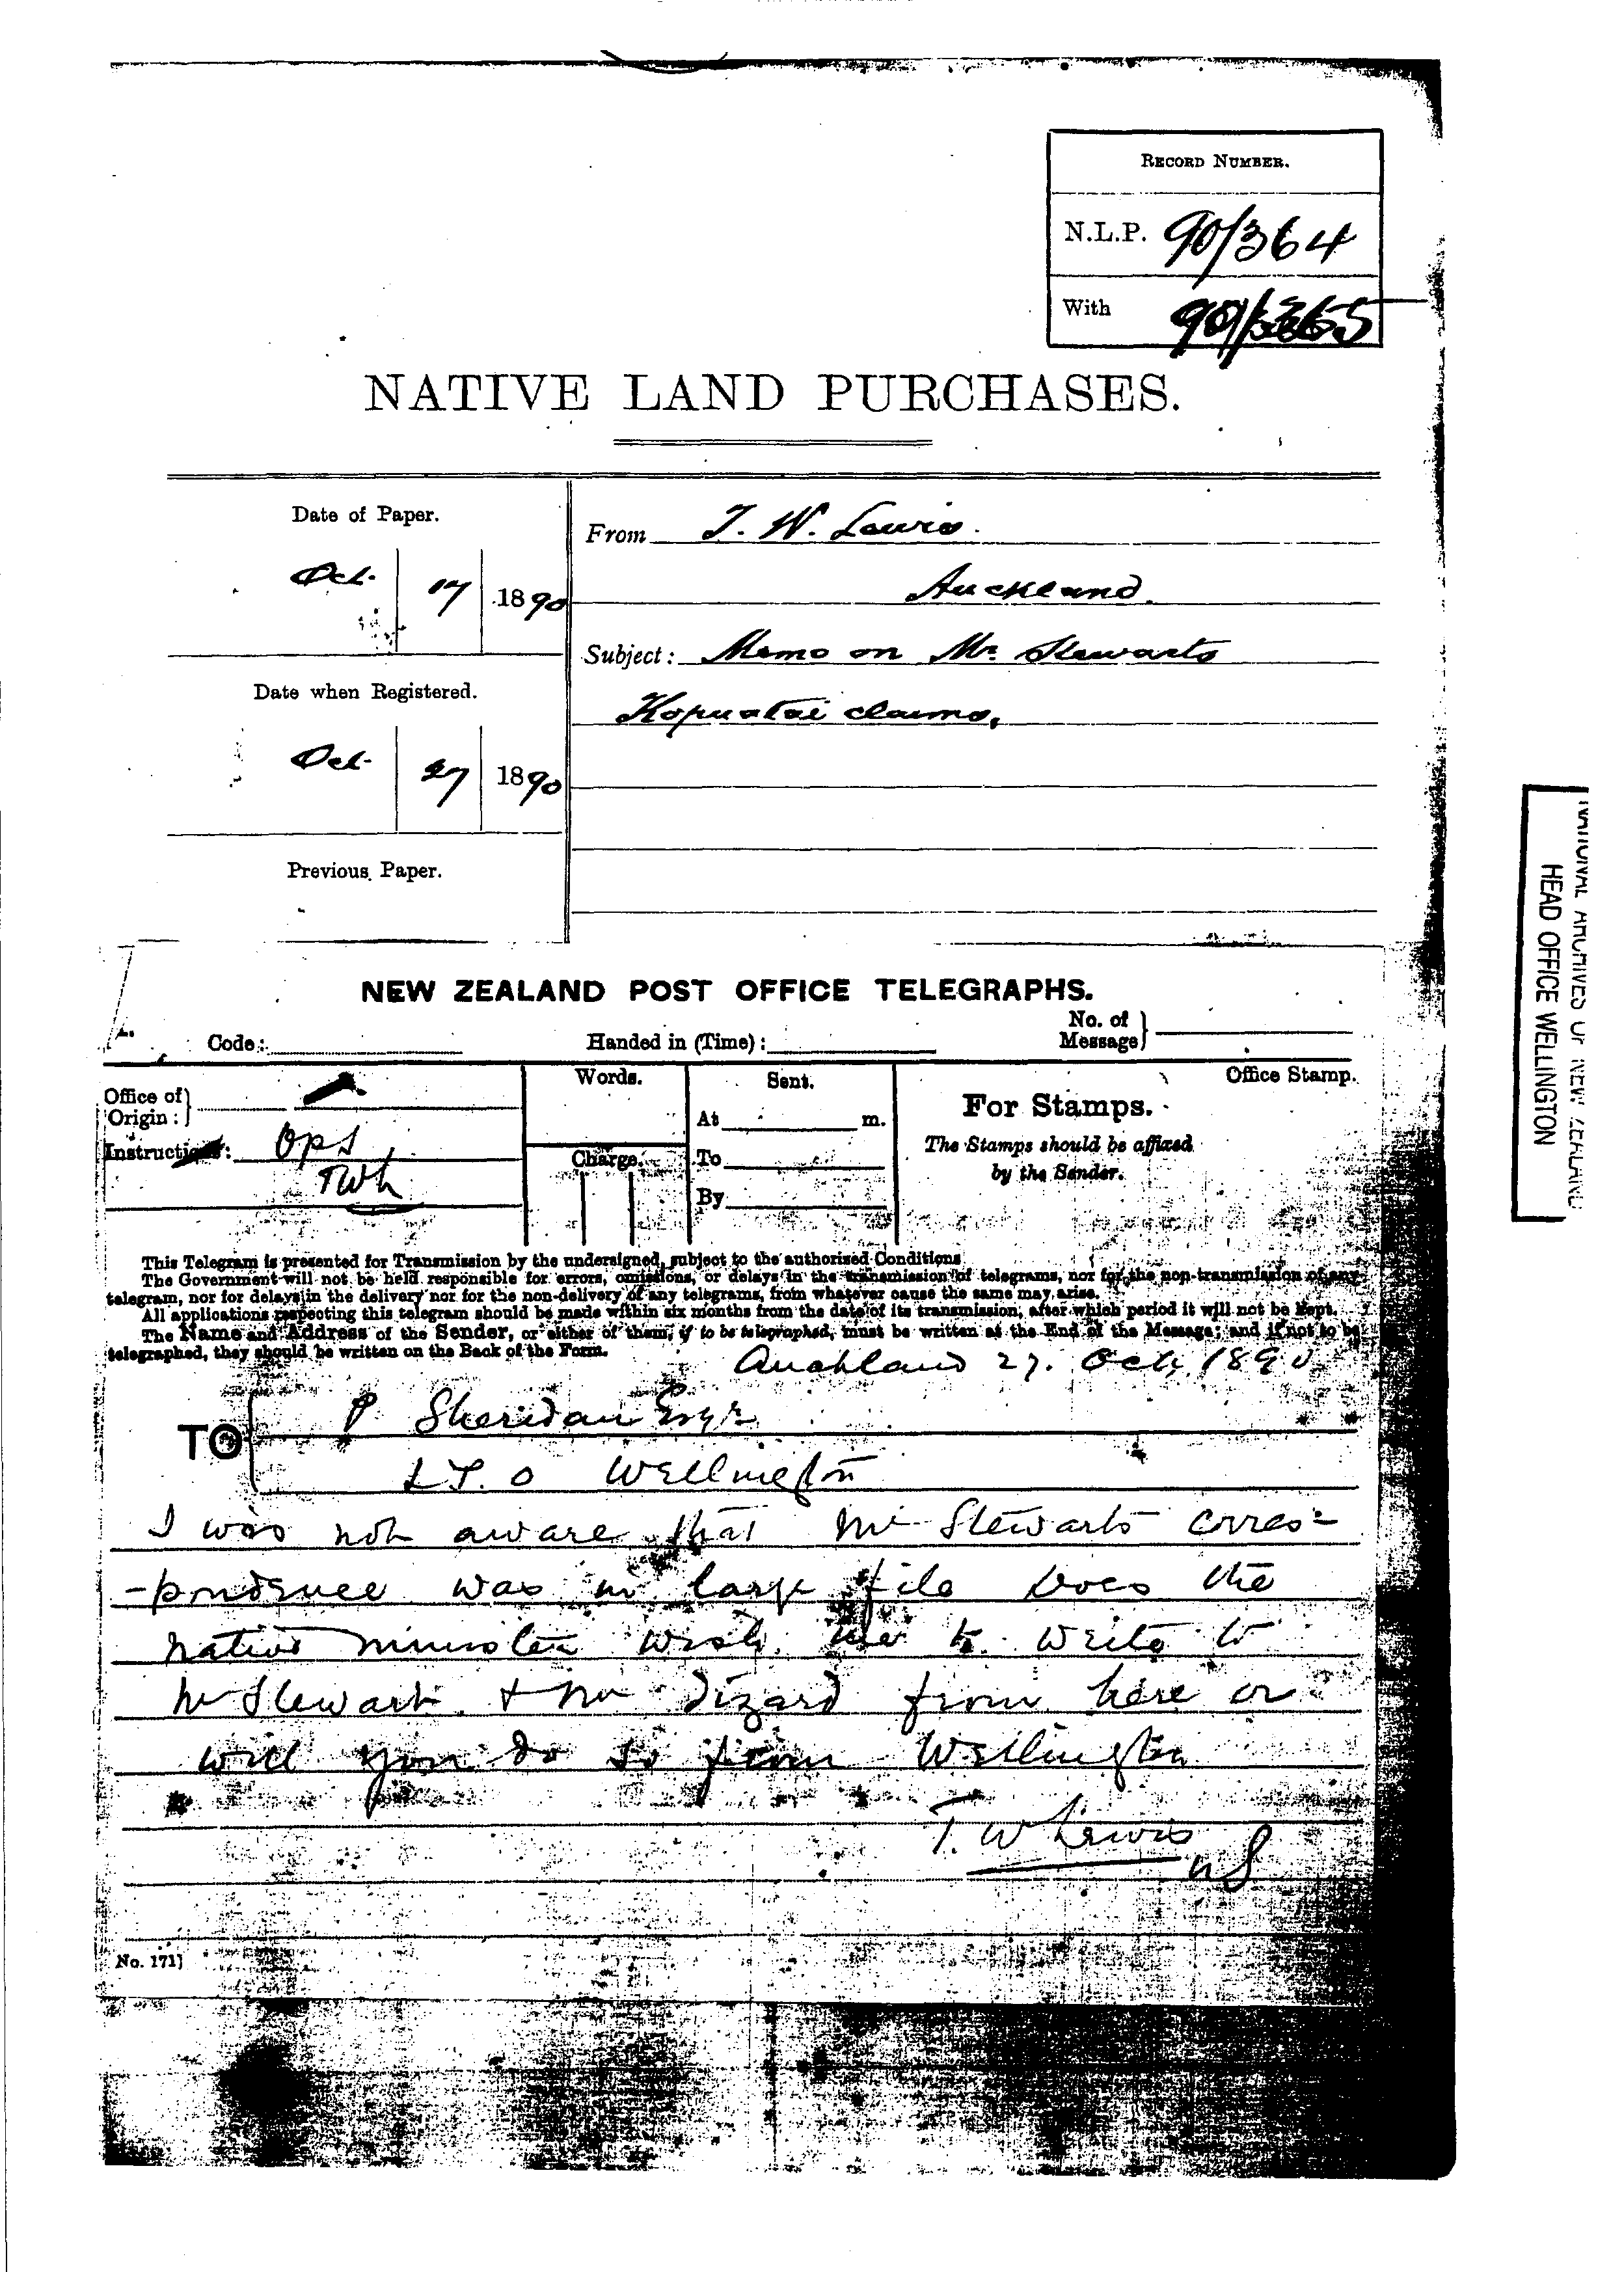 RECORD NUMBER.
N.L.P. 90/364
With 90/365
NATIVE LAND PURCHASES.
Date of Paper.
Oct. 17 1890
From T. W. Lewis.
Auckland.
Subject: Memo on Mr. Stewarts
Kopuatai claims.
Date when Registered.
Oct. 27 1890
Previous Paper.
NATIONAL ARCHIVES OF NEW ZEALAND
HEAD OFFICE WELLINGTON
NEW ZEALAND POST OFFICE TELEGRAPHS.
Code: Handed in (Time): No. of Message
Office of Origin:
Instructions: Ops
TWL
Words.
Charge.
Sent.
At m.
To
By
Office Stamp.
For Stamps.
The Stamps should be affixed
by the Sender.
This Telegram is presented for Transmission by the undersigned, subject to the authorized Conditions
The Government will not be held responsible for errors, omissions, or delays in the transmission of telegrams, nor for the non-transmission of any
telegram, nor for delays in the delivery nor for the non-delivery of any telegrams, from whatever cause the same may arise.
All applications respecting this telegram should be made within six months from the date of its transmission, after which period it will not be kept.
The Name and Address of the Sender, or either of them, if to be telegraphed, must be written at the End of the Message; and if not to be
telegraphed, they should be written on the Back of the Form.
Auckland 27. Oct. 1890
TO P. Sheridan Esqre
L.P.O Wellington
I was not aware that Mr Stewarts corres=
-pondence was in large file Does the
Native Minister wish me to write to
Mr Stewart & Mr Dizard from here or
will you do so from Wellington
T. W Lewis
US
No. 171]